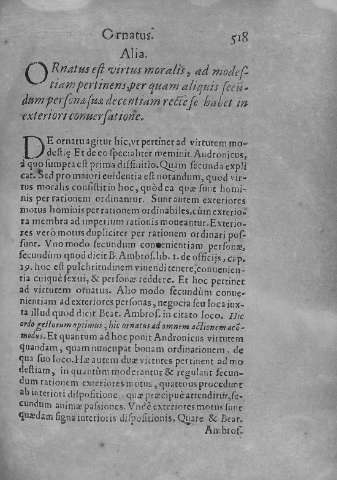 Ornatus. 518
Alia.
ORnatus est virtus moralis, ad modes-
tiam pertinens, per quam aliquis secũ-
dum persona suæ decentiam recte se habet in
exteriori conuersatione.
DE ornatu agitur hic, vt pertinet ad virtutem mo-
destię. Et de eo specialiter meminit Andronicus,
à quo sumpta est prima diffinitio. Quam secũda expli
cat. Sed pro maiori euidentia est notandum, quod vir-
tus moralis consistit in hoc, quòd ea quæ sunt homi-
nis per rationem ordinantur. Sunt autem exteriores
motus hominis per rationem ordinabiles, cùm exterio-
ra membra ad imperium rationis moueantur. Exterio-
res verò motus dupliciter per rationem ordinari pos-
sunt. Vno modo secundum conuenientiam personæ,
secundùm quod dicit B. Ambros. lib. 1. de officijs, cap.
19. hoc est pulchritudinem viuendi tenere, conuenien-
tia cuique sexui, & personæ reddere. Et hoc pertinet
ad virtutem ornatus. Alio modo secundum conue-
nientiam ad exteriores personas, negocia seu loca iux-
ta illud quod dicit Beat. Ambros. in citato loco. Hic
ordo gestorum optimus, hic ornatus ad omnem actionem acõ-
modus. Et quantum ad hoc ponit Andronicus virtutem
quandam, quam nuncupat bonam ordinationem, de
qua suo loco. Hæ autem duæ virtutes pertinent ad mo
destiam, in quantùm moderantur & regulant secun-
dum rationem exteriores motus, quatenus procedunt
ab interiori dispositione, quæ præcipuè attenditur, se-
cundum animæ passiones. Vnde exteriores motus sunt
quædam signa interioris dispositionis. Quare & Beat.
Ambros.